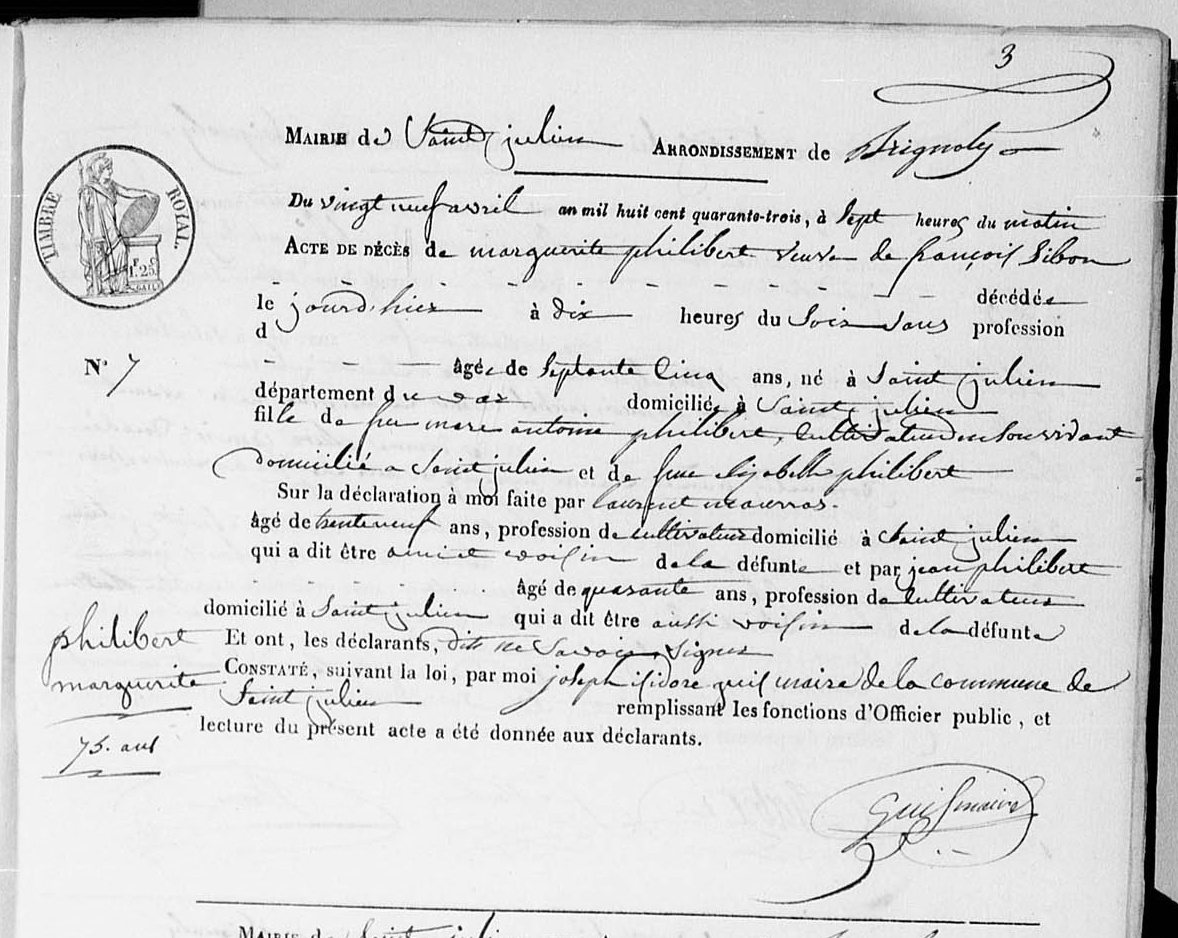 3
MAIRIE de Saint julien ARRONDISSEMENT de Brignoles
TIMBRE ROYAL.
F. C
1.25
Du vingt neuf avril an mil huit cent quarante-trois, à Sept heures du matin
ACTE DE DÉCÈS de marguerite philibert veuve de françois Sibon
décédée
le jourd'hier à dix heures du Soir Sans profession
d
N° 7
âgée de Septante Cinq ans, né à Saint julien
département du var domiciliée à Saint julien
fille de feu marc antoine philibert, Cultivateur en Son vivant
domicilié a Saint julien et de feue Elizabeth philibert
Sur la déclaration à moi faite par laurent maurras.
âgé de trente neuf ans, profession de cultivateur domicilié à Saint julien
qui a dit être ami et voisin de la défunte et par jean philibert
âgé de quarante ans, profession de Cultivateur
domicilié à Saint julien qui a dit être aussi voisin de la défunte
philibert
marguerite
75. ans
Et ont, les déclarants, dit ne Savoir Signer
CONSTATÉ, suivant la loi, par moi joseph isidore guis maire de la commune de
Saint julien remplissant les fonctions d'Officier public, et
lecture du présent acte a été donnée aux déclarants.
Guis maire
MAIRIE de Saint julien